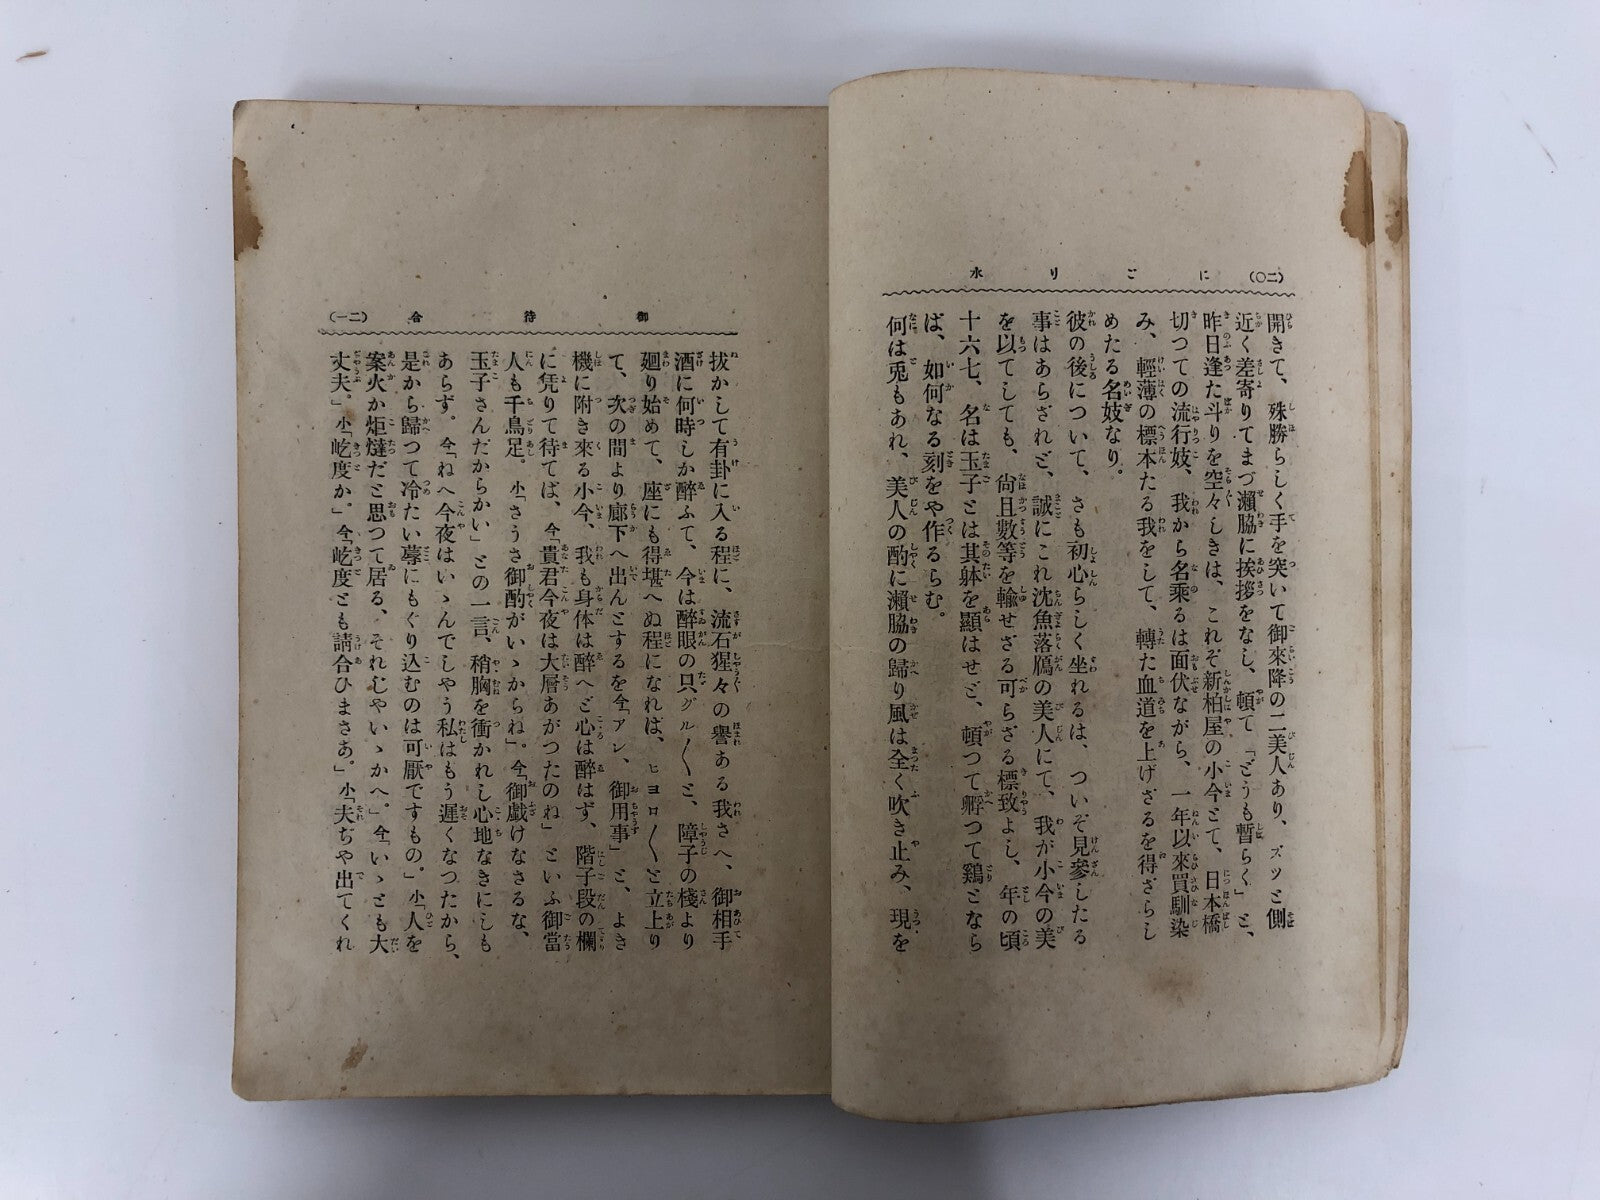 にごり水 (二〇)
開きて、殊勝らしく手を突いて御來降の二美人あり、ズツと側
近く差寄りてまづ瀨脇に挨拶をなし、頓て「どうも暫らく」と、
昨日逢た斗りを空々しきは、これぞ新柏屋の小今とて、日本橋
切つての流行妓、我から名乘るは面伏ながら、一年以來買馴染
み、輕薄の標本たる我をして、轉た血道を上げざるを得ざらし
めたる名妓なり。
彼の後について、さも初心らしく坐れるは、ついぞ見參したる
事はあらざれど、誠にこれ沈魚落鴈の美人にて、我が小今の美
を以てしても、尙且數等を輸せざる可らざる標致よし、年の頃
十六七、名は玉子とは其躰を顯はせど、頓つて孵つて鷄となら
ば、如何なる刻をや作るらむ。
何は兎もあれ、美人の酌に瀨脇の歸り風は全く吹き止み、現を
御待合 (二一)
拔かして有卦に入る程に、流石猩々の譽ある我さへ、御相手
酒に何時しか醉ふて、今は醉眼の只グル〱と、障子の棧より
廻り始めて、座にも得堪へぬ程になれば、ヒヨロ〱と立上り
て、次の間より廊下へ出んとするを今「アン、御用事」と、よき
機に附き來る小今、我も身体は醉へど心は醉はず、階子段の欄
に凭りて待てば、今「貴君今夜は大層あがつたのね」といふ御當
人も千鳥足。小「さうさ御酌がいゝからね」。今「御戲けなさるな、
玉子さんだからかい」との一言、稍胸を衝かれし心地なきにしも
あらず。今「ねへ今夜はいゝんでしやう私はもう遲くなつたから、
是から歸つて冷たい蓐にもぐり込むのは可厭ですもの。」小「人を
案火か炬燵だと思つて居る、それじやいゝかへ」。今「いゝとも大
丈夫。」小「屹度か。」今「屹度とも請合ひまさあ。」小「夫ぢや出てくれ